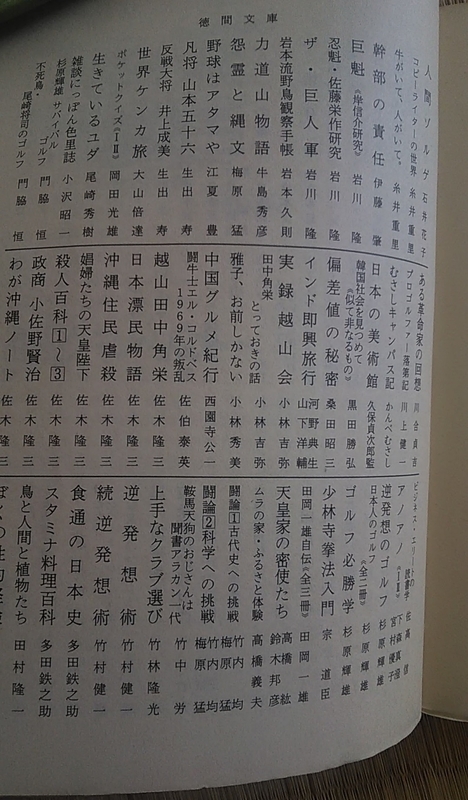 徳間文庫
人間ゾルゲ 石井花子
コピーライターの世界 糸井重里
牛がいて、人がいて。 糸井重里
幹部の責任 伊藤肇
巨魁《岸信介研究》 岩川隆
忍魁・佐藤栄作研究 岩川隆
ザ・巨人軍 岩川隆
岩本流野鳥観察手帳 岩本久則
力道山物語 牛島秀彦
怨霊と縄文 梅原猛
野球はアタマや 江夏豊
凡将 山本五十六 生出寿
反戦大将 井上成美 生出寿
世界ケンカ旅 大山倍達
ポケットクイズ《ⅠⅡ》 岡田光雄
生きているユダ 尾崎秀樹
雑談にっぽん色里誌 小沢昭一
杉原輝雄 サバイバルゴルフ 門脇恒
不死鳥・尾崎将司のゴルフ 門脇恒
ある革命家の回想 川合貞吉
プロゴルファー落第記 川上健一
むさしキャンパス記 かんべむさし
日本の美術館 久保貞次郎監
韓国社会を見つめて《似て非なるもの》 黒田勝弘
偏差値の秘密 桑田昭三
インド即興旅行 河野典生 山下洋輔
実録越山会 小林吉弥
田中角栄 とっておきの話 小林吉弥
雅子、お前しかない 小林秀美
中国グルメ紀行 西園寺公一
闘牛士エル・コルドベス 1969年の叛乱 佐伯泰英
越山 田中角栄 佐木隆三
日本漂民物語 佐木隆三
沖縄住民虐殺 佐木隆三
娼婦たちの天皇陛下 佐木隆三
殺人百科1〜3 佐木隆三
政商 小佐野賢治 佐木隆三
わが沖縄ノート 佐木隆三
ビジネス・エリートの読書学 佐高信
アノアノ《ⅠⅡ》 下森真澄 宮村優子
逆発想のゴルフ 杉原輝雄
日本人のゴルフ《全二冊》 杉原輝雄
ゴルフ必勝学 杉原輝雄
少林寺拳法入門 宗道臣
田岡一雄自伝《全三冊》 田岡一雄
天皇家の密使たち 高橋紘 鈴木邦彦
ムラの家・ふるさと体験 高橋義夫
闘論1古代史への挑戦 竹内均 梅原猛
闘論2科学への挑戦 竹内均 梅原猛
鞍馬天狗のおじさんは 聞書アラカン一代 竹中労
上手なクラブ選び 竹林隆光
逆発想術 竹村健一
続逆発想術 竹村健一
食通の日本史 多田鉄之助
スタミナ料理百科 多田鉄之助
鳥と人間と植物たち 田村隆一